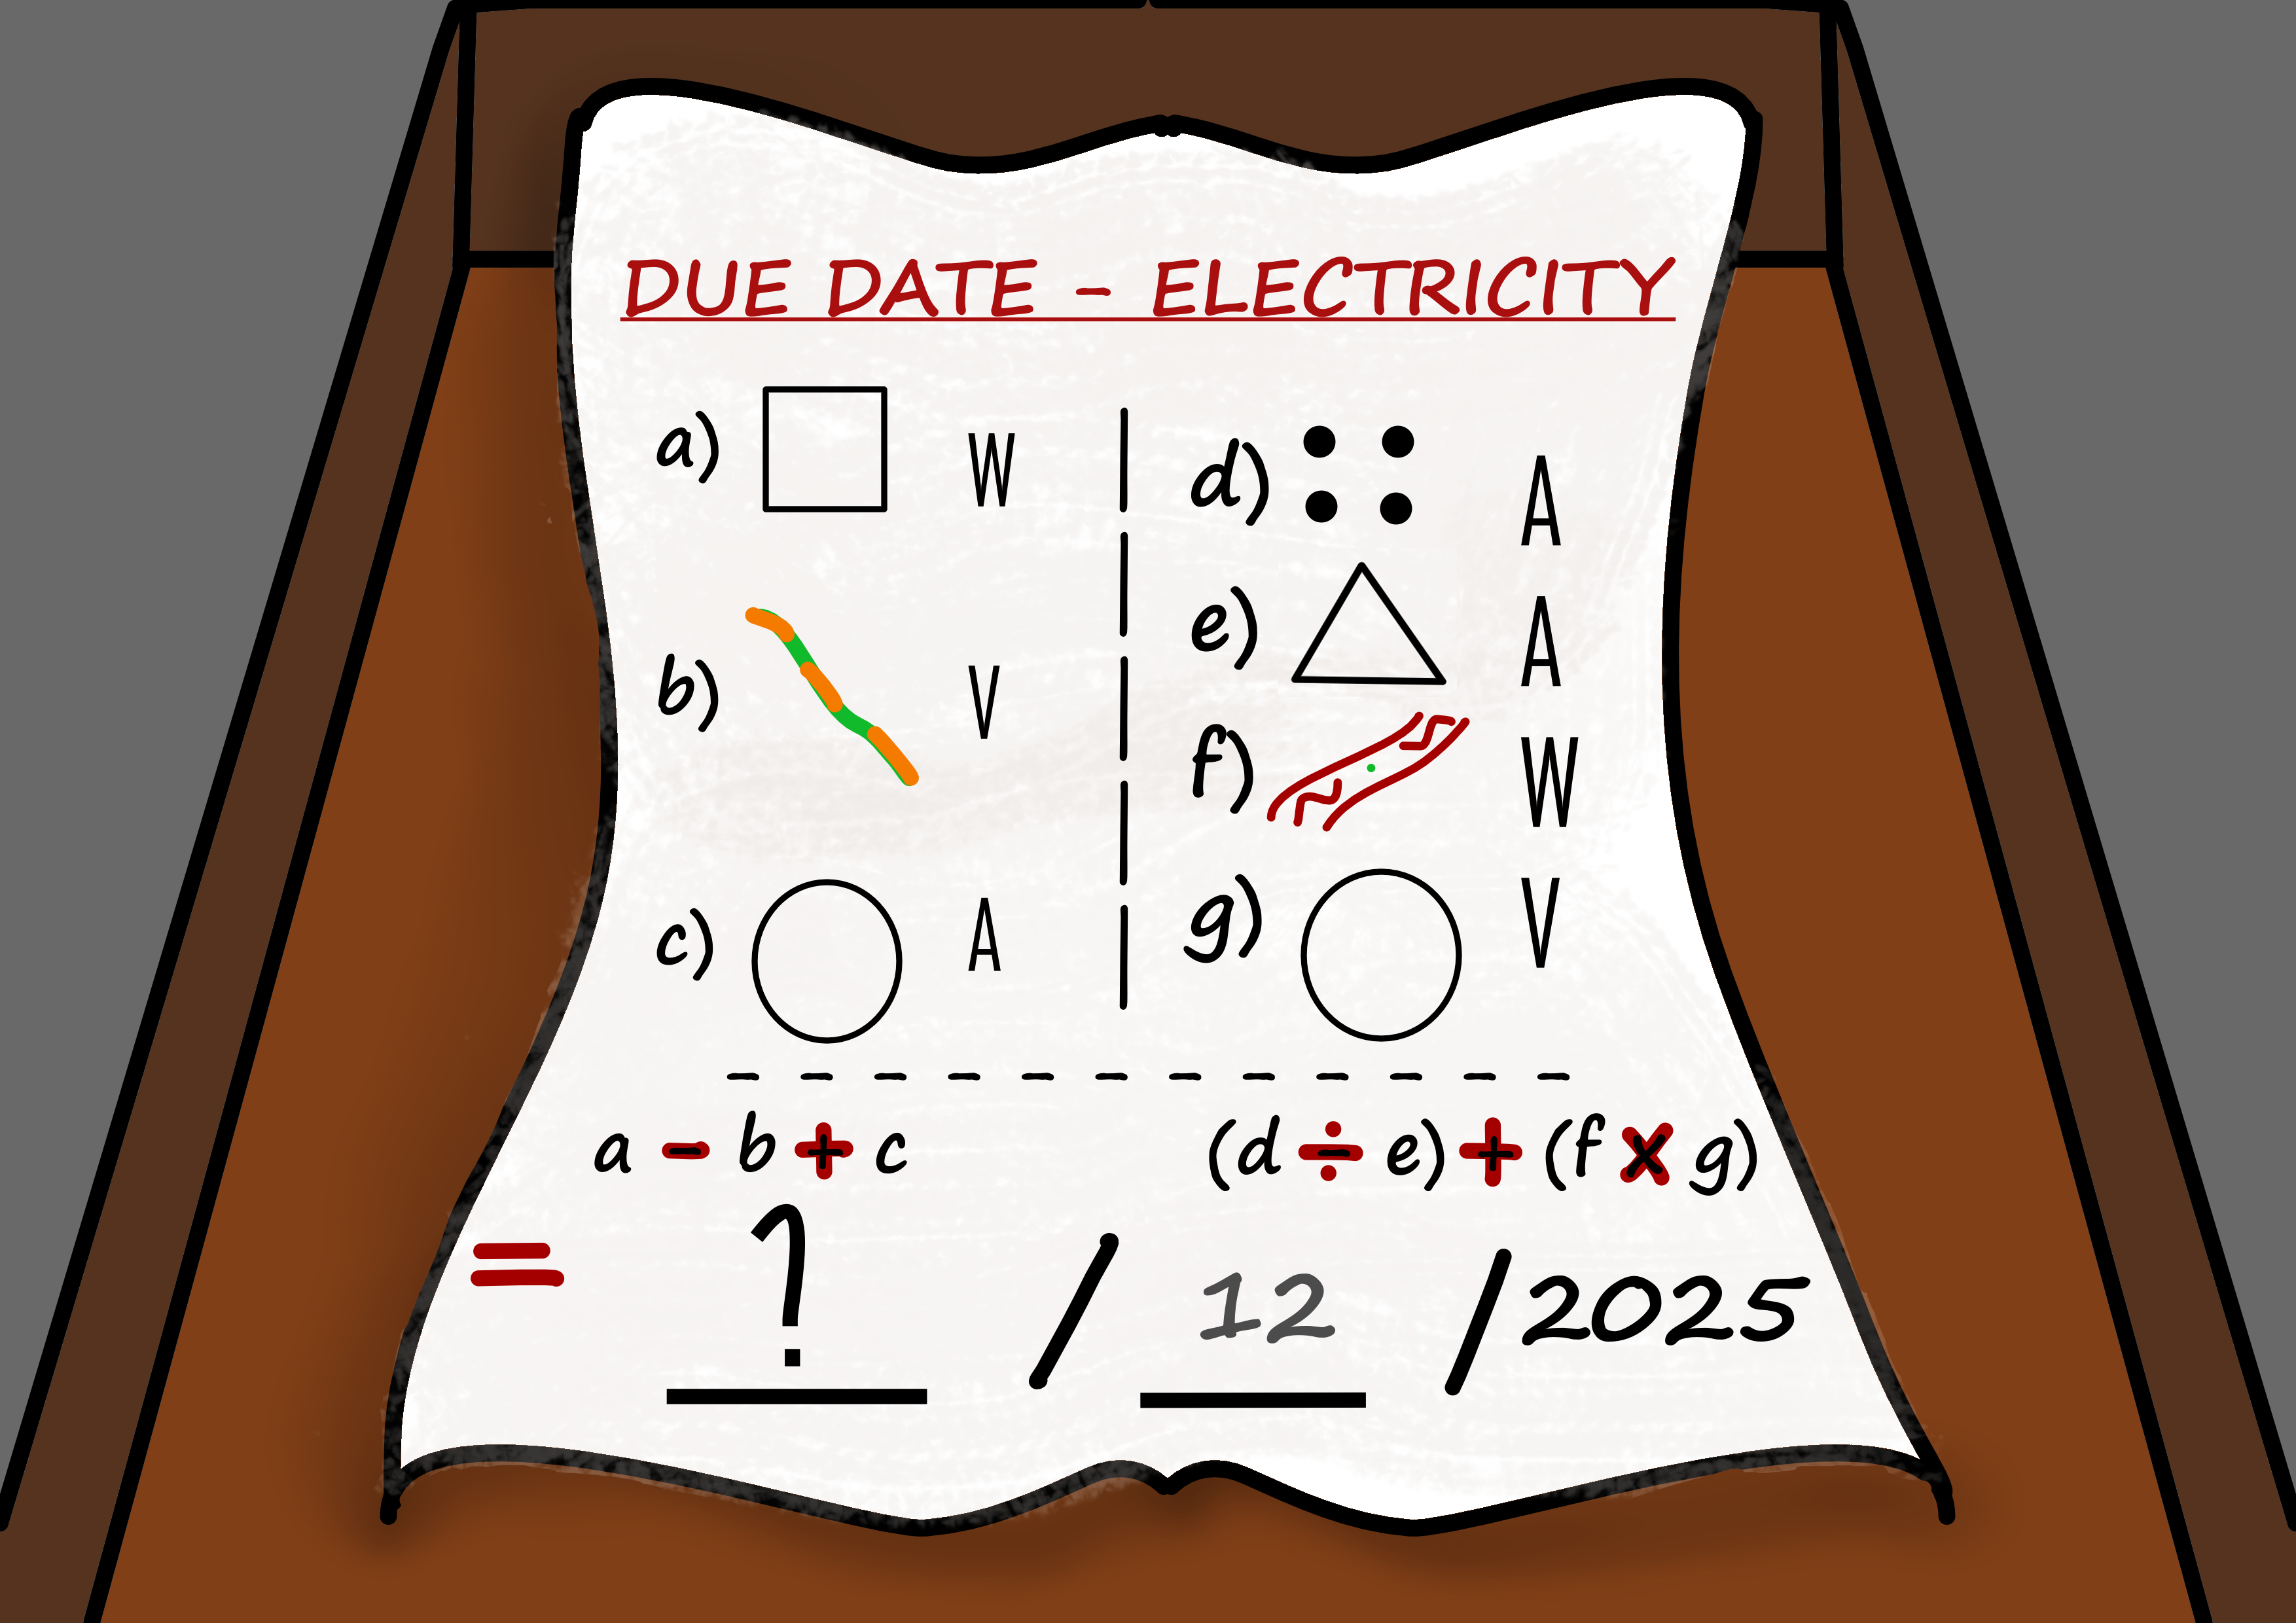 DUE DATE - ELECTRICITY
a) W
b) V
c) A
d) A
e) A
f) W
g) V
a - b + c
(d ÷ e) + (f x g)
= ? / 12 / 2025